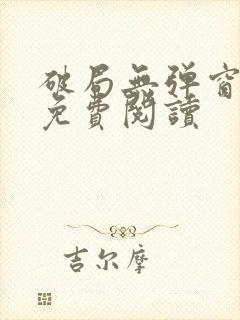 破局無弹窗
免費閱讀
吉尔摩